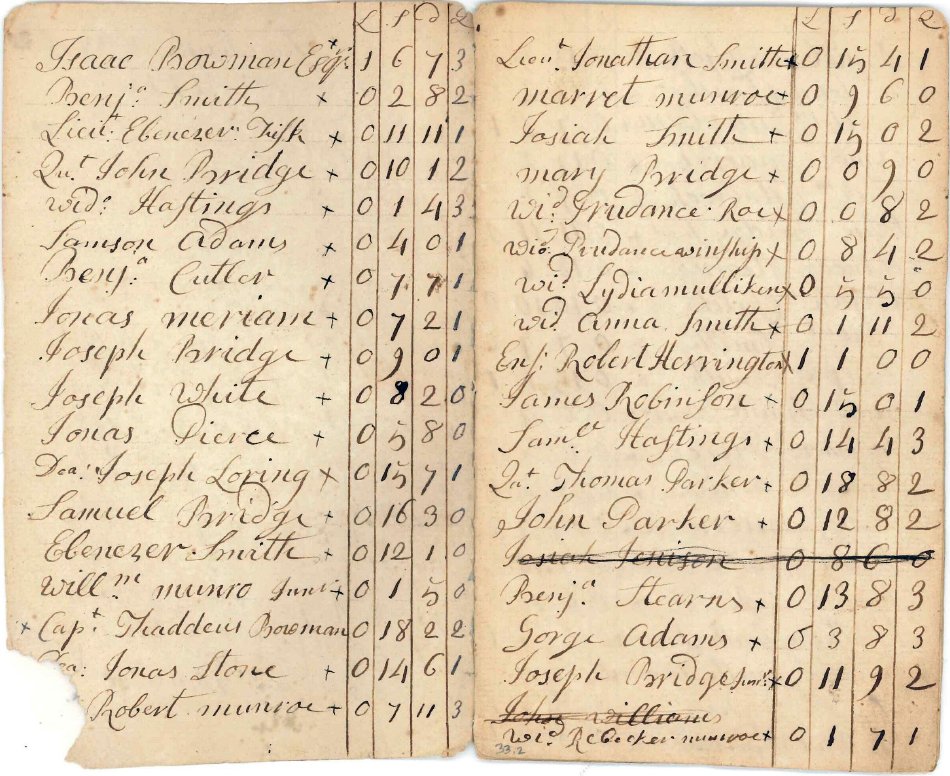 L S d Q
Isaac Bowman Esqr. x 1 6 7 3
Benja. Smith x 0 2 8 2
Lieut. Ebenezer Fisk x 0 11 11 1
Qut. John Bridge x 0 10 1 2
wid. Hastings x 0 1 4 3
Samson Adams x 0 4 0 1
Benja. Cutler x 0 7 7 1
Jonas meriam x 0 7 2 1
Joseph Bridge x 0 9 0 1
Joseph White x 0 8 2 0
Jonas Pierce x 0 5 8 0
Dea: Joseph Loring x 0 15 7 1
Samuel Bridge x 0 16 3 0
Ebenezer Smith x 0 12 1 0
Willm. munro Junr x 0 1 5 0
x Capt. Thaddeus Bowman 0 18 2 2
Jonas Stone x 0 14 6 1
Robert munroe x 0 7 11 3
L S d Q
Lieut. Jonathan Smith x 0 15 4 1
marret munroe x 0 9 6 0
Josiah Smith x 0 15 0 2
mary Bridge x 0 0 9 0
wid. Prudance Roe x 0 0 8 2
wid. Prudance winship x 0 8 4 2
wid. Lydia mulliken x 0 5 5 0
wid. anna Smith x 0 1 11 2
Ens: Robert Herrington x 1 1 0 0
James Robinson x 0 15 0 1
Samll. Hastings x 0 14 4 3
Qut. Thomas Parker x 0 18 8 2
John Parker x 0 12 8 2
Josiah Jenison 0 8 6 0
Benja. Stearns x 0 13 8 3
Gorge Adams x 0 3 8 3
Joseph Bridge Junr. x 0 11 9 2
John williams
wid. Rebecker munroe x 0 1 7 1
33.2